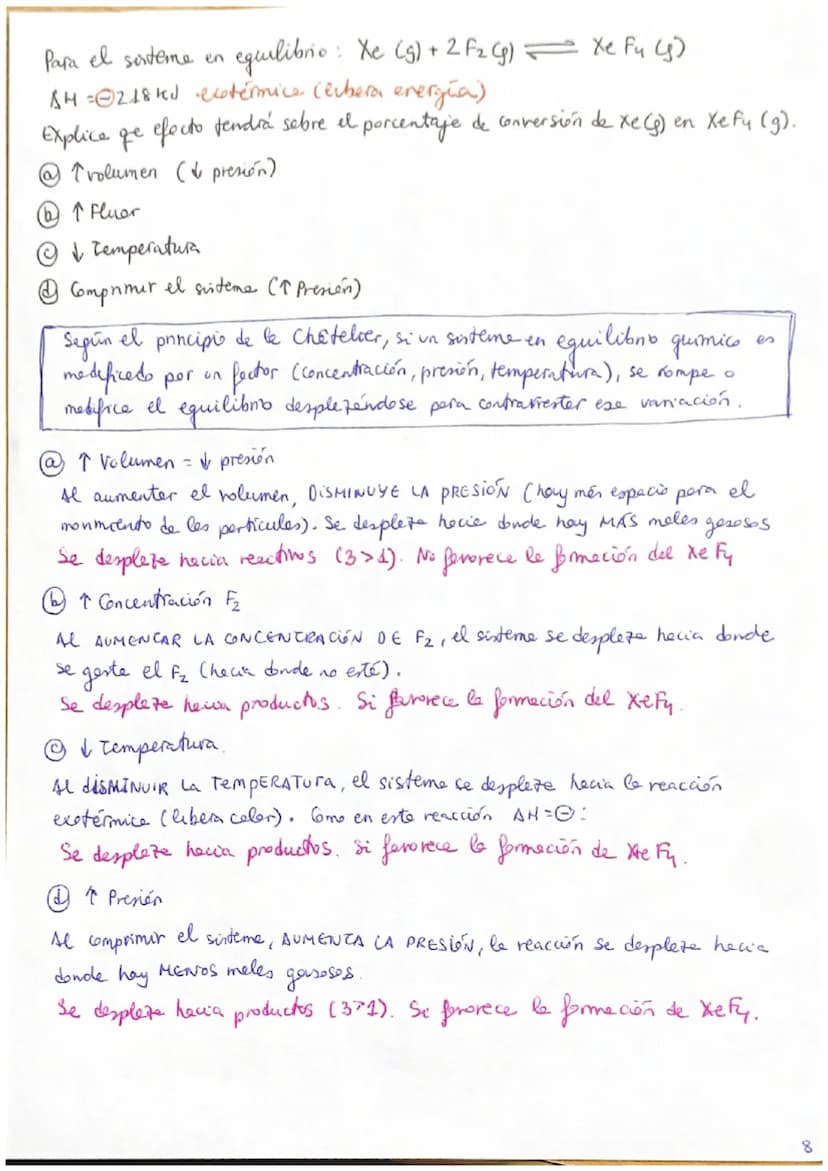 Para el sistema en equilibrio: Xe (g) + 2 F₂ (g) ⇌ Xe F₄ (g)
ΔH = ⊖218 kJ exotérmica (libera energía)
Explica qe efecto tendrá sobre el porcentaje de conversión de Xe(g) en XeF₄ (g).
ⓐ ↑ volumen (↓ presión)
ⓑ ↑ Fluor
ⓒ ↓ Temperatura
ⓓ Comprimir el sistema (↑ Presión)
Según el principio de le Châtelier, si un sistema en equilibrio químico es
modificado por un factor (concentración, presión, temperatura), se rompe o
modifica el equilibrio desplazándose para contrarrestar esa variación.
ⓐ ↑ Volumen = ↓ presión
Al aumentar el volumen, DISMINUYE LA PRESIÓN (hay más espacio para el
movimiento de las partículas). Se desplaza hacia donde hay MÁS moles gaseosos
Se desplaza hacia reactivos (3>1). No favorece la formación del Xe F₄
ⓑ ↑ Concentración F₂
AL AUMENTAR LA CONCENTRACIÓN DE F₂, el sistema se desplaza hacia donde
se gasta el F₂ (hacia donde no esté).
Se desplaza hacia productos. Si favorece la formación del XeF₄.
ⓒ ↓ Temperatura.
AL DISMINUIR LA TEMPERATURA, el sistema se desplaza hacia la reacción
exotérmica (libera calor). Como en esta reacción ΔH=⊖:
Se desplaza hacia productos. Si favorece la formación de Xe F₄.
ⓓ ↑ Presión
Al comprimir el sistema, AUMENTA LA PRESIÓN, la reacción se desplaza hacia
donde hay MENOS moles gaseosos.
Se desplaza hacia productos (3>1). Si favorece la formación de XeF₄.
8